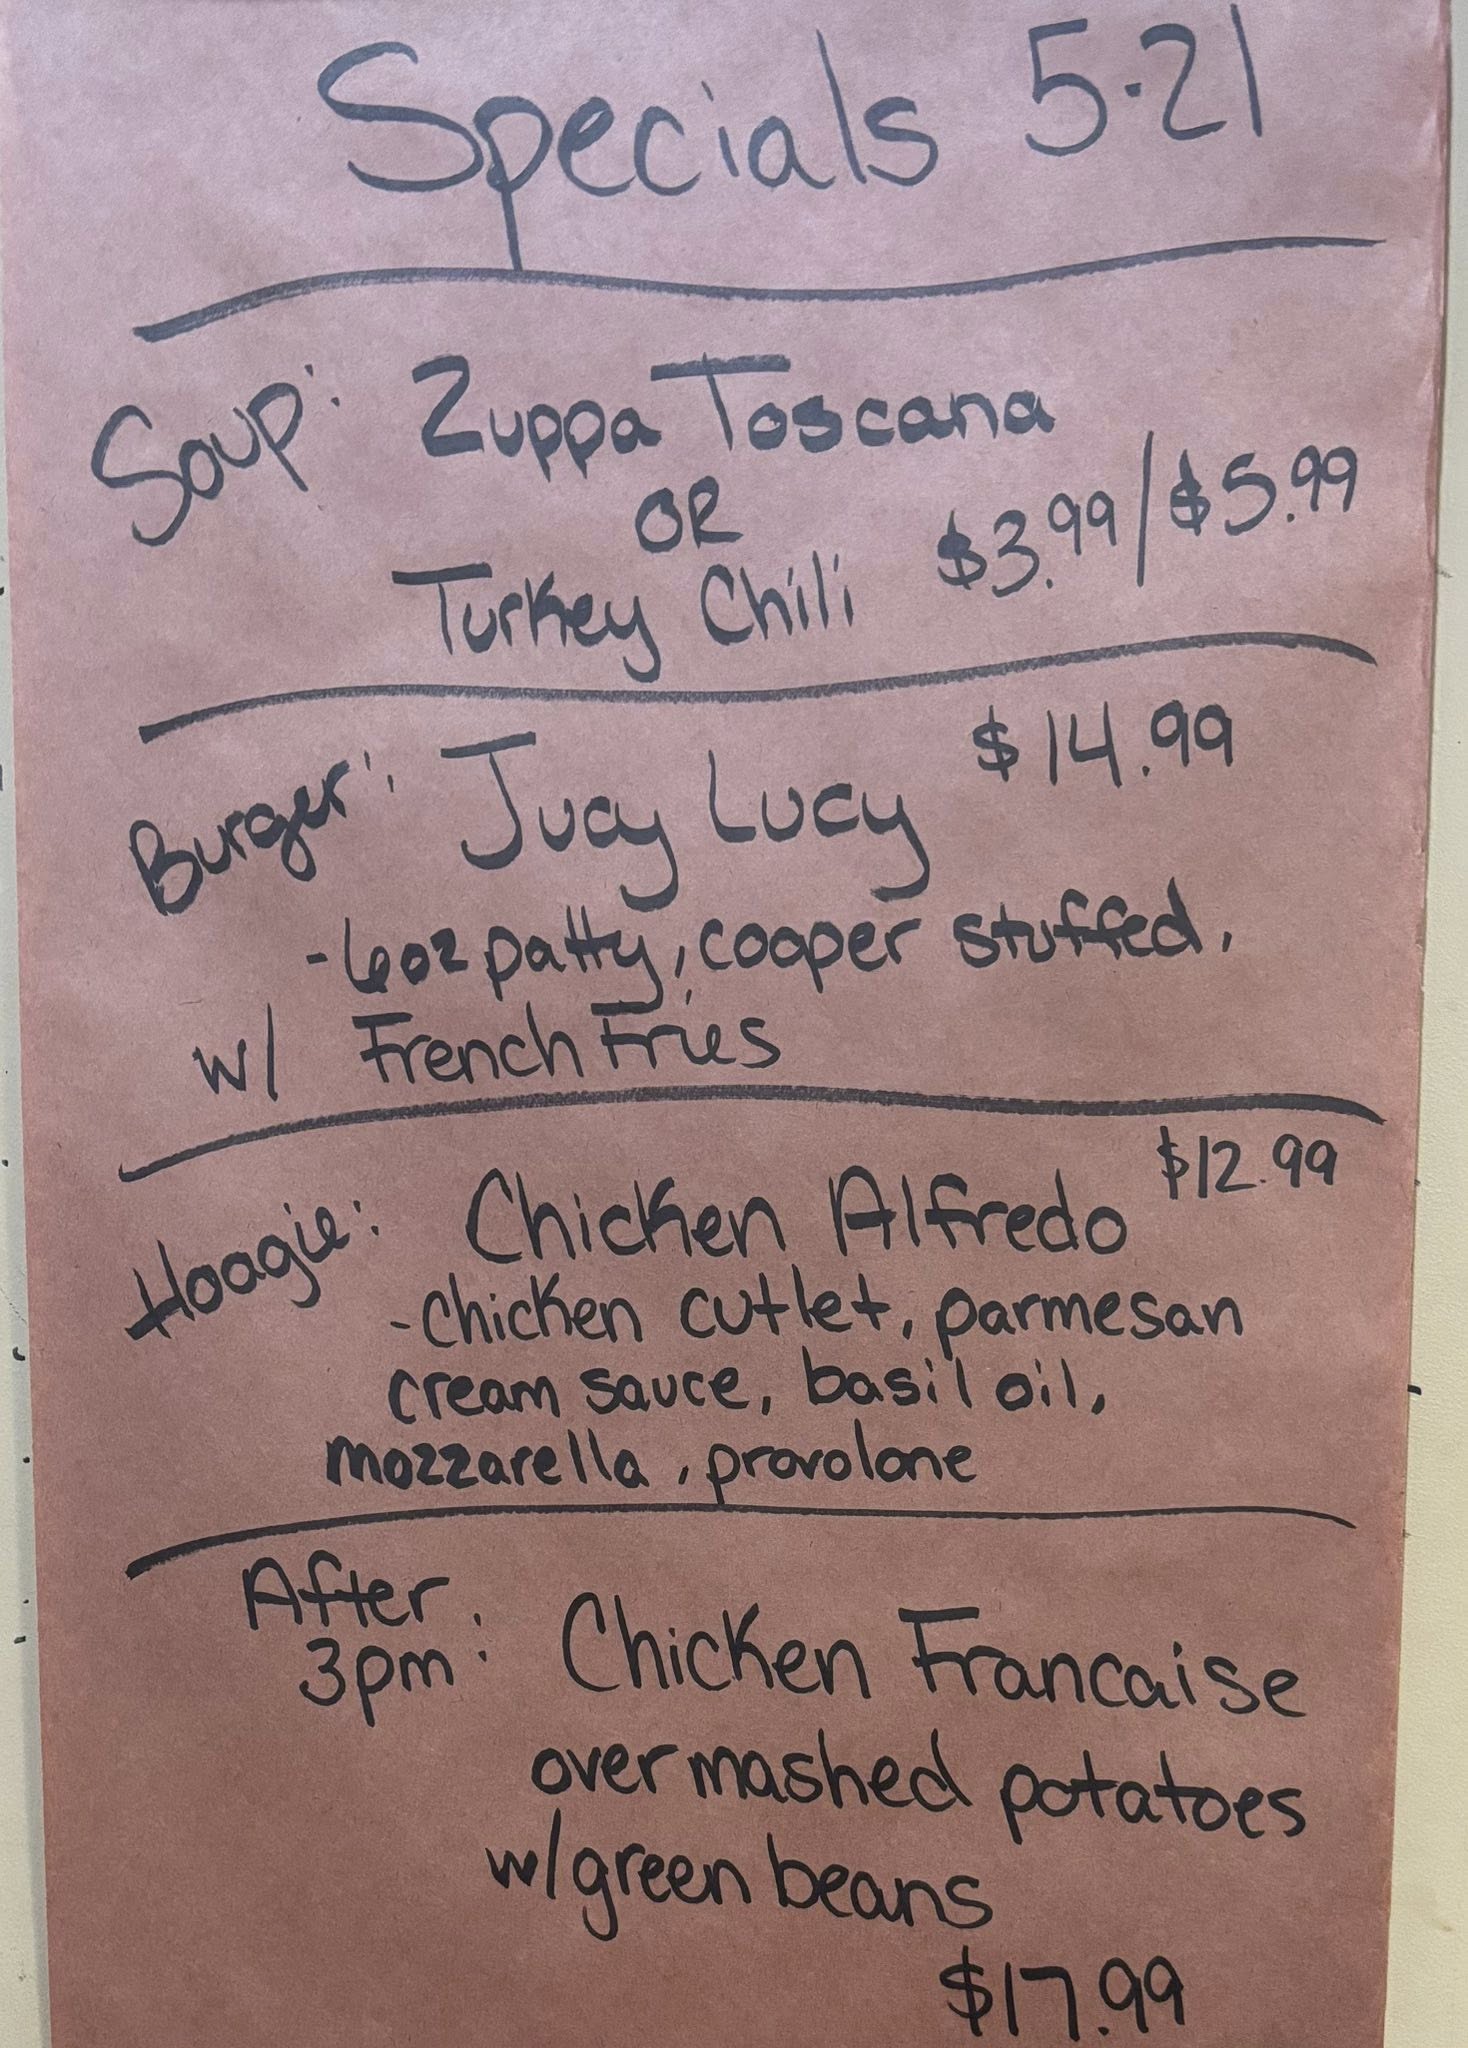 Specials 5.21
Soup: Zuppa Toscana
OR
Turkey Chili $3.99/$5.99
Burger: Jucy Lucy $14.99
-6oz patty, cooper stuffed,
w/ French Fries
Hoagie: Chicken Alfredo $12.99
-chicken cutlet, parmesan
cream sauce, basil oil,
mozzarella, provolone
After
3pm: Chicken Francaise
over mashed potatoes
w/green beans
$17.99